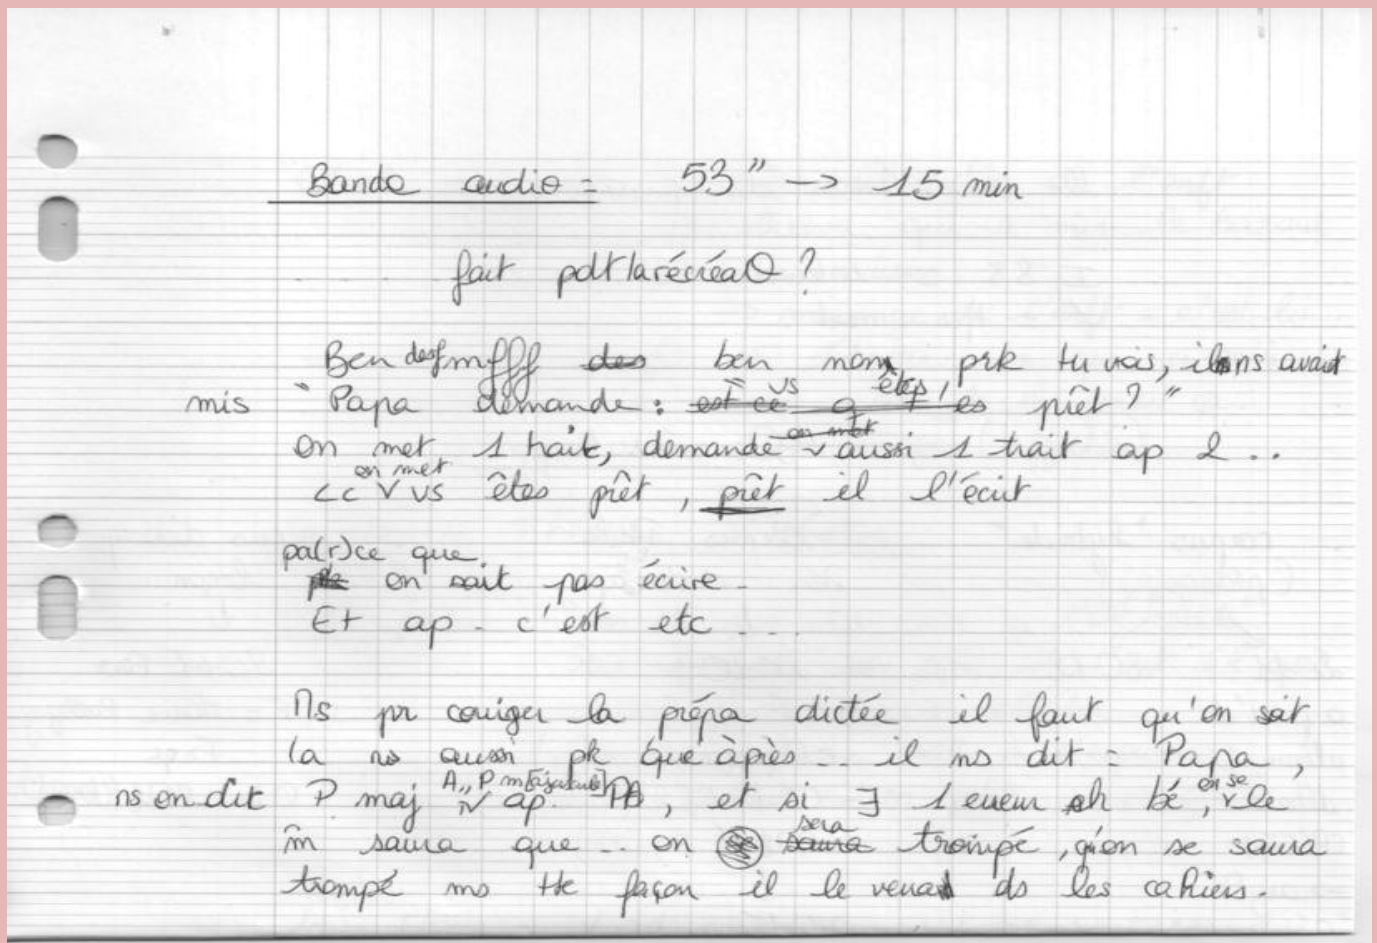 Bande audio = 53" -> 15 min
fait pdt la récréaΘ ?
Ben des mfff des ben non, prk tu vois, il ns avait
mis "Papa demande : est ce q vs êtes, es prêt ? "
on met 1 trait, demande on met aussi 1 trait ap 2 ..
Lc on met vs êtes prêt, prêt il l'écrit
pa(r)ce que
on sait pas écrire -
Et ap - c'est etc ...
Ns pr corriger la prépa dictée il faut qu'on soit
là ns aussi pk que après .. il ns dit = Papa,
ns en dit P maj A,, P m[ajuscule] ap. PA, et si ∃ 1 erreur eh bé, on se le
m̂ saura que .. on sera saura trompé, qu'on se saura
trompé ms tte façon il le verra ds les cahiers.